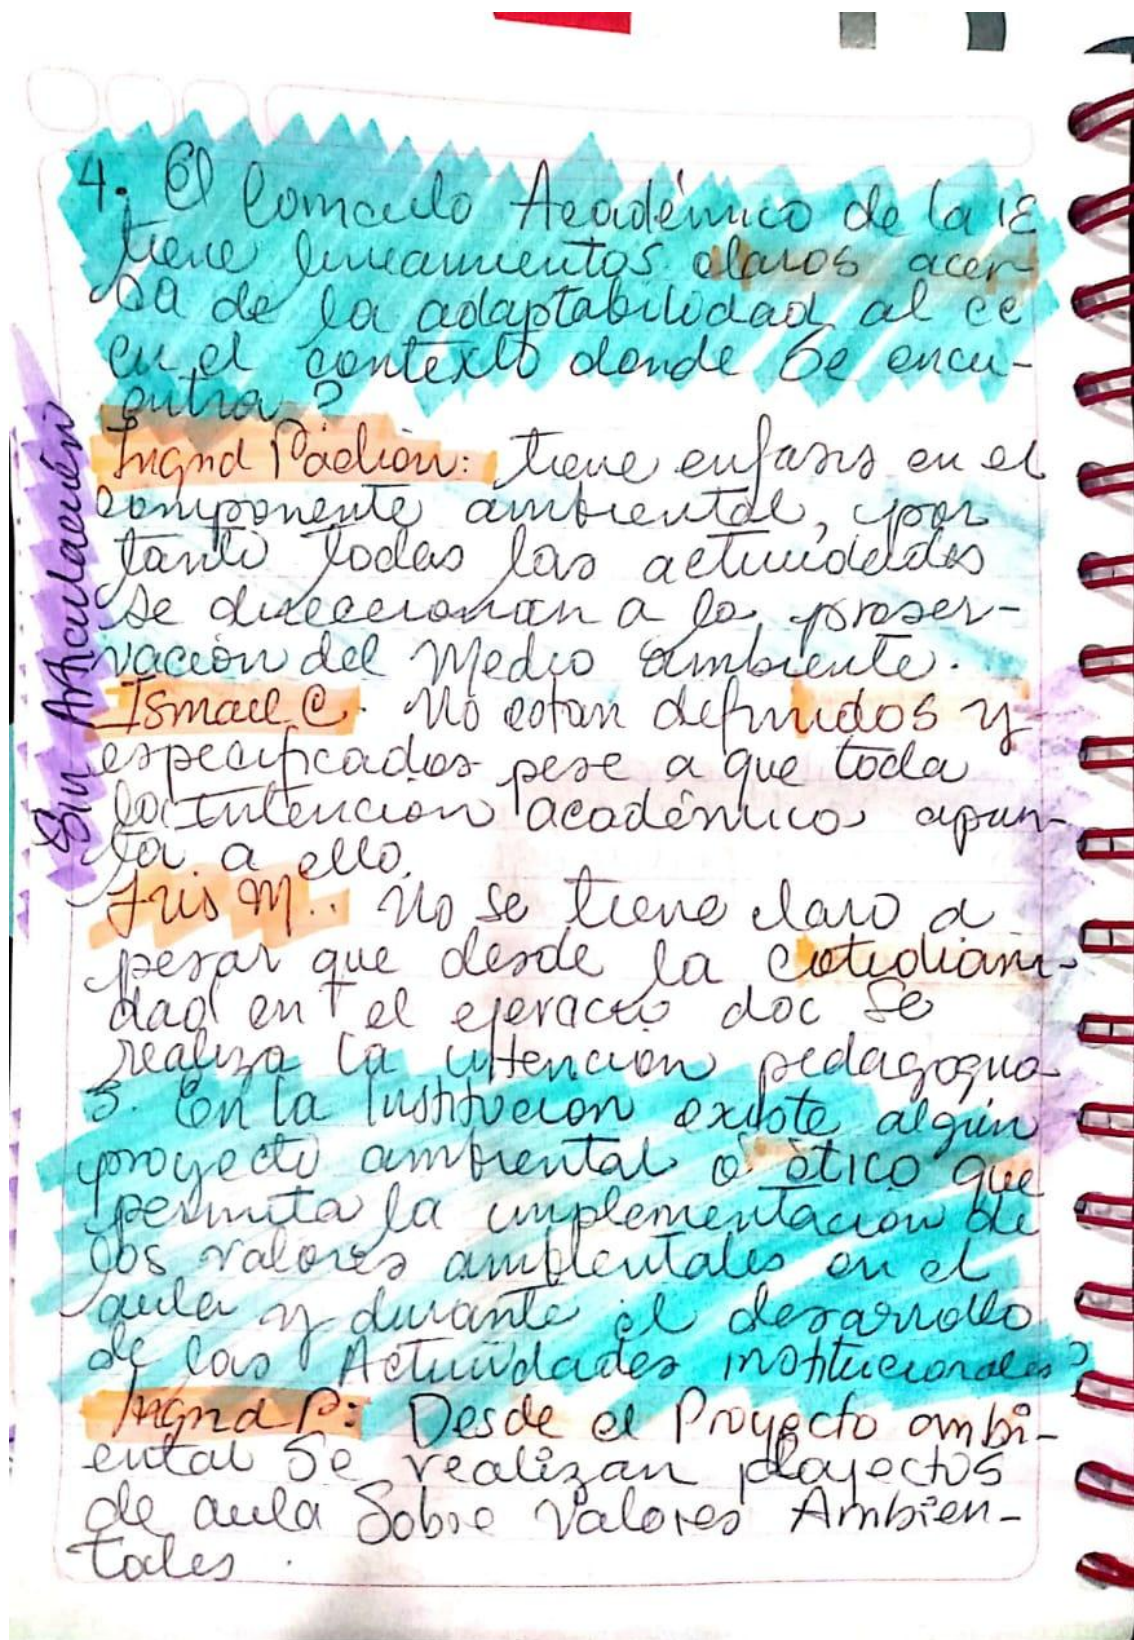 4. El Comculo Académico de la IE
tiene lineamientos claros acer-
ca de la adaptabilidad al cc
en el contexto donde se encu-
entra?
Ingrid Padión: tiene enfasis en el
componente ambiental, por
tanto todas las actividades
se direccionan a la preser-
vación del Medio ambiente.
Ismael C. No estan definidos y
especificados pese a que toda
la intencion académica apun-
ta a ello.
Iris M.. No se tiene claro a
pesar que desde la cotidiani-
dad en el ejercicio doc se
realiza la intencion pedagogica
5. En la Institucion existe algún
proyecto ambiental o ético que
permita la implementacion de
los valores ambientales en el
aula y durante el desarrollo
de las Actividades institucionales?
Ingrid P: Desde el Proyecto ambi-
ental se realizan proyectos
de aula Sobre Valores Ambien-
tales.
Sin Articulación